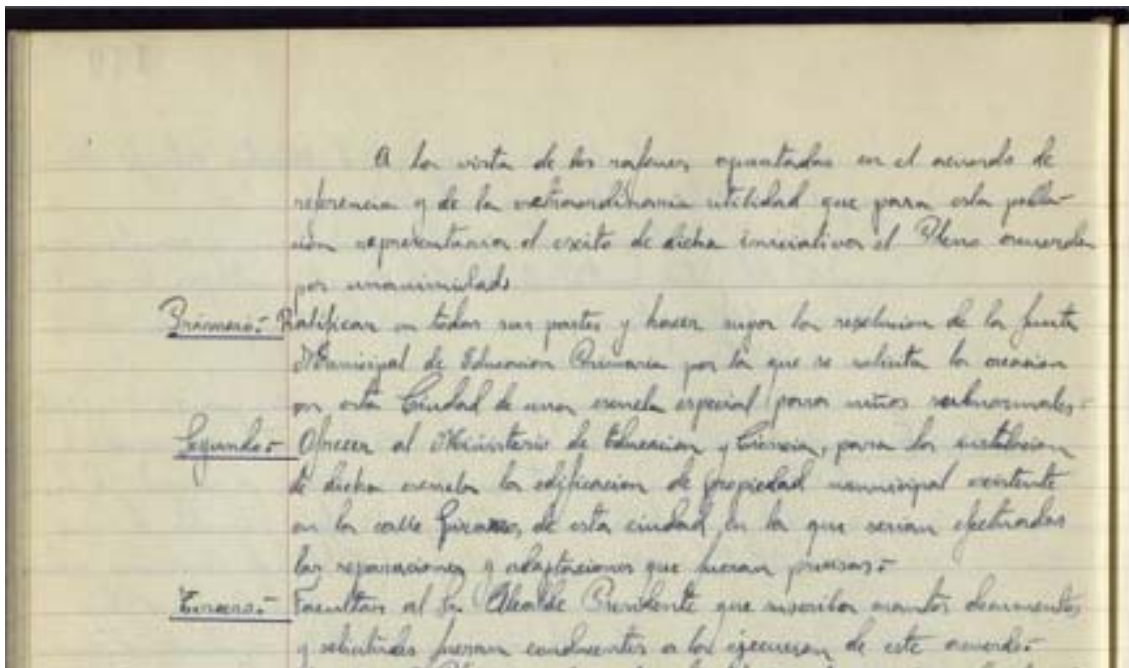 A la vista de las razones apuntadas en el acuerdo de
referencia y de la extraordinaria utilidad que para esta pobla-
ción representaria el exito de dicha iniciativa el Pleno acuerda
por unanimidad
Primero.- Ratificar en todas sus partes y hacer suya la resolucion de la Junta
Municipal de Educacion Primaria por la que se solicita la creacion
en esta Ciudad de una escuela especial para niños subnormales.-
Segundo.- Ofrecer al Ministerio de Educacion y Ciencia, para la instalacion
de dicha escuela la edificacion de propiedad municipal existente
en la calle de esta ciudad, en la que serian efectuadas
las reparaciones y adaptaciones que fueran precisas.-
Tercero.- Facultar al Sr. Alcalde Presidente que suscriba cuantos documentos
y solicitudes fueran conducentes a la ejecucion de este acuerdo.-